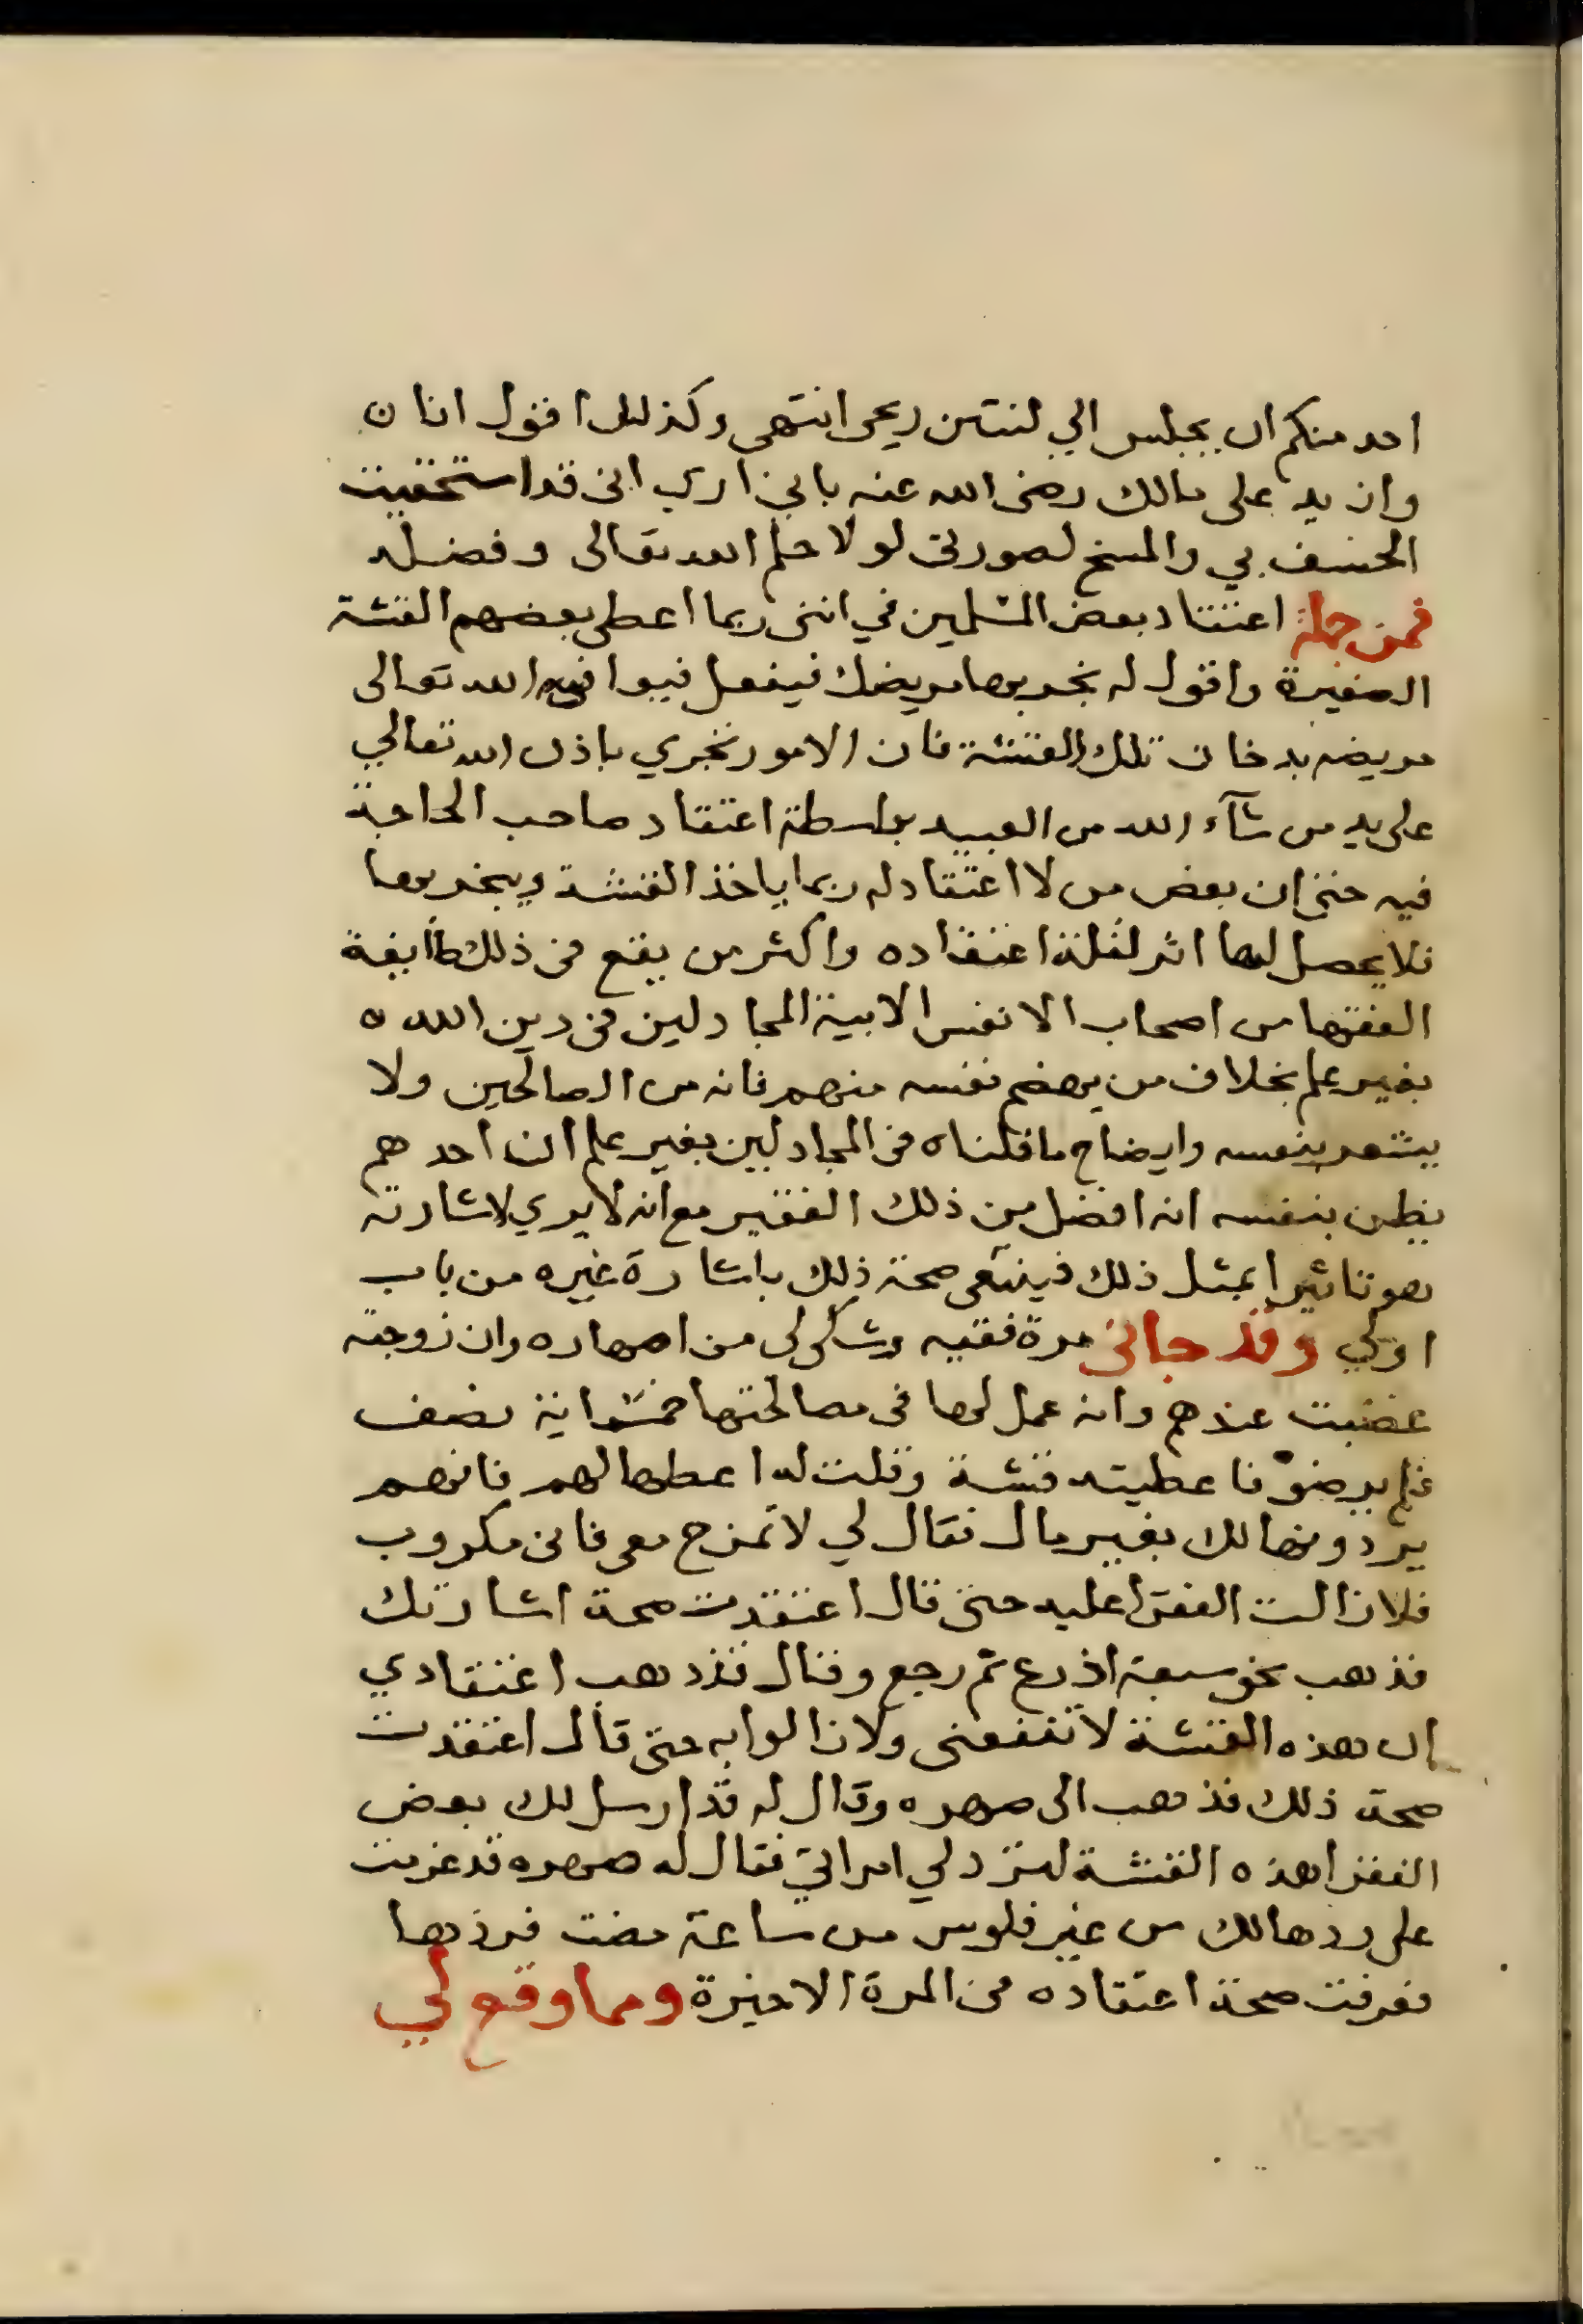 احد منكم ان يجلس الي لنتن ريحي انتهى وكذلك اقول انا ن
وازيد على مالك رضى الله عنه باني اري انى قد استحقيت
الخسف بي والمسخ لصورتى لولا حلم الله تعالى وفضله
فمن جملة اعتقاد بعض المسلمين في اننى ربما اعطى بعضهم القشة
الصغيرة واقول له بخر بها مريضك فيفعل فيعافى الله تعالى
مريضه بدخان تلك القشة فان الامور تجري باذن الله تعالي
على يد من شآء الله من العبيد بواسطة اعتقاد صاحب الحاجة
فيه حتى ان بعض من لا اعتقاد له ربما ياخذ القشة ويبخر بها
فلا يحصل لها اثر لقلة اعتقاده واكثر من يقع في ذلك طايفة
الفقها من اصحاب الانفس الابية المجادلين في دين الله ه
بغير علم بخلاف من يهضم نفسه منهم فانه من الصالحين ولا
يشعر بنفسه وايضاح ما قلناه في المجادلين بغير علم ان احدهم
يظن بنفسه انه افضل من ذلك الفقير مع انه لا يري لاشارته
هو تاثيرا بمثل ذلك فينفى صحة ذلك باشارة غيره من باب
اولي وقد جانى مرة فقيه وشكى لى من اصهاره وان زوجته
غضبت عندهم وانه عمل لها في مصالحتها خمسماية نصف
فلم يرضوا فاعطيته قشة وقلت له اعطها لهم فانهم
يردونها لك بغير مال فقال لي لا تمزح معى فانى مكروب
فلا زالت الفقرا عليه حتى قال اعتقدت صحة اشارتك
فذهب نحو سبعة اذرع ثم رجع وقال قد ذهب اعتقادي
ان هذه القشة لا تنفعنى ولا زالوا به حتى قال اعتقدت
صحة ذلك فذهب الى صهره وقال له قد ارسل لك بعض
الفقرا هذه القشة لترد لي امراتي فقال له صهره قد عزمت
على ردها لك من غير فلوس من ساعة مضت فردها
فعرفت صحة اعتقاده في المرة الاخيرة ومما وقع لي